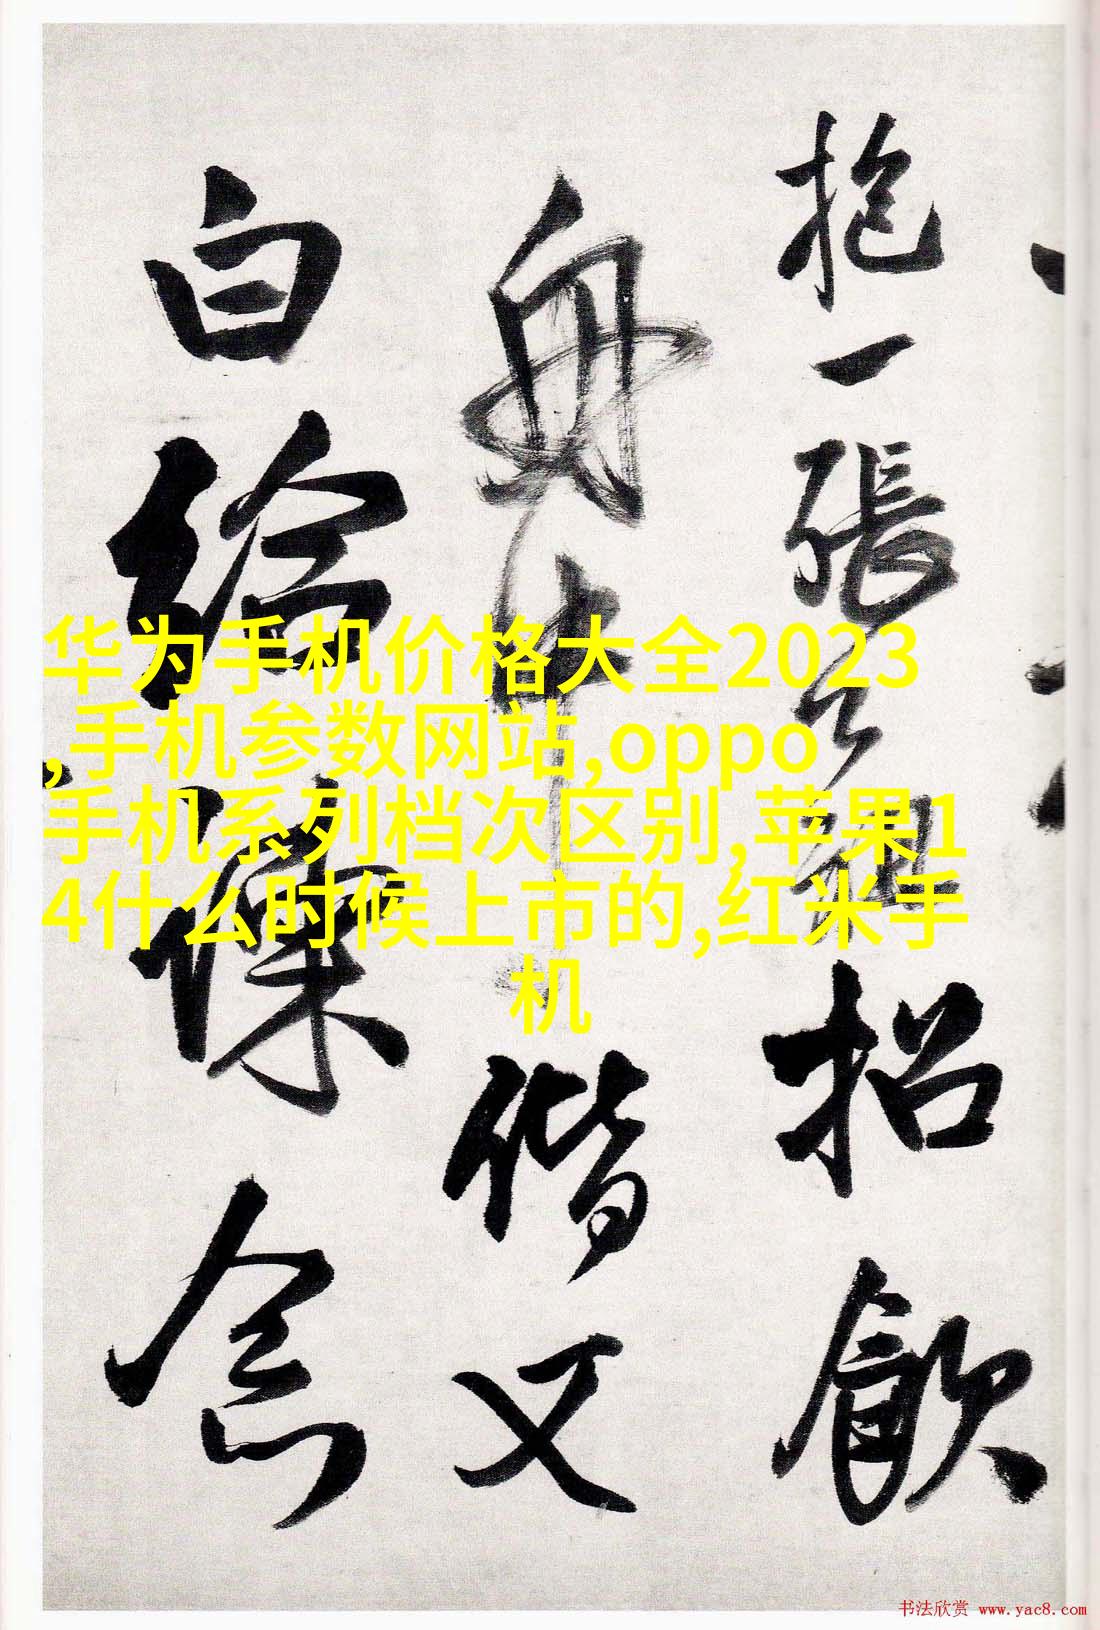 抱一張公祖招飲
舟中偕又
白給諫念
华为手机价格大全2023
,手机参数网站,oppo
手机系列档次区别,苹果1
4什么时候上市的,红米手
机
书法欣赏 www.yac8.com